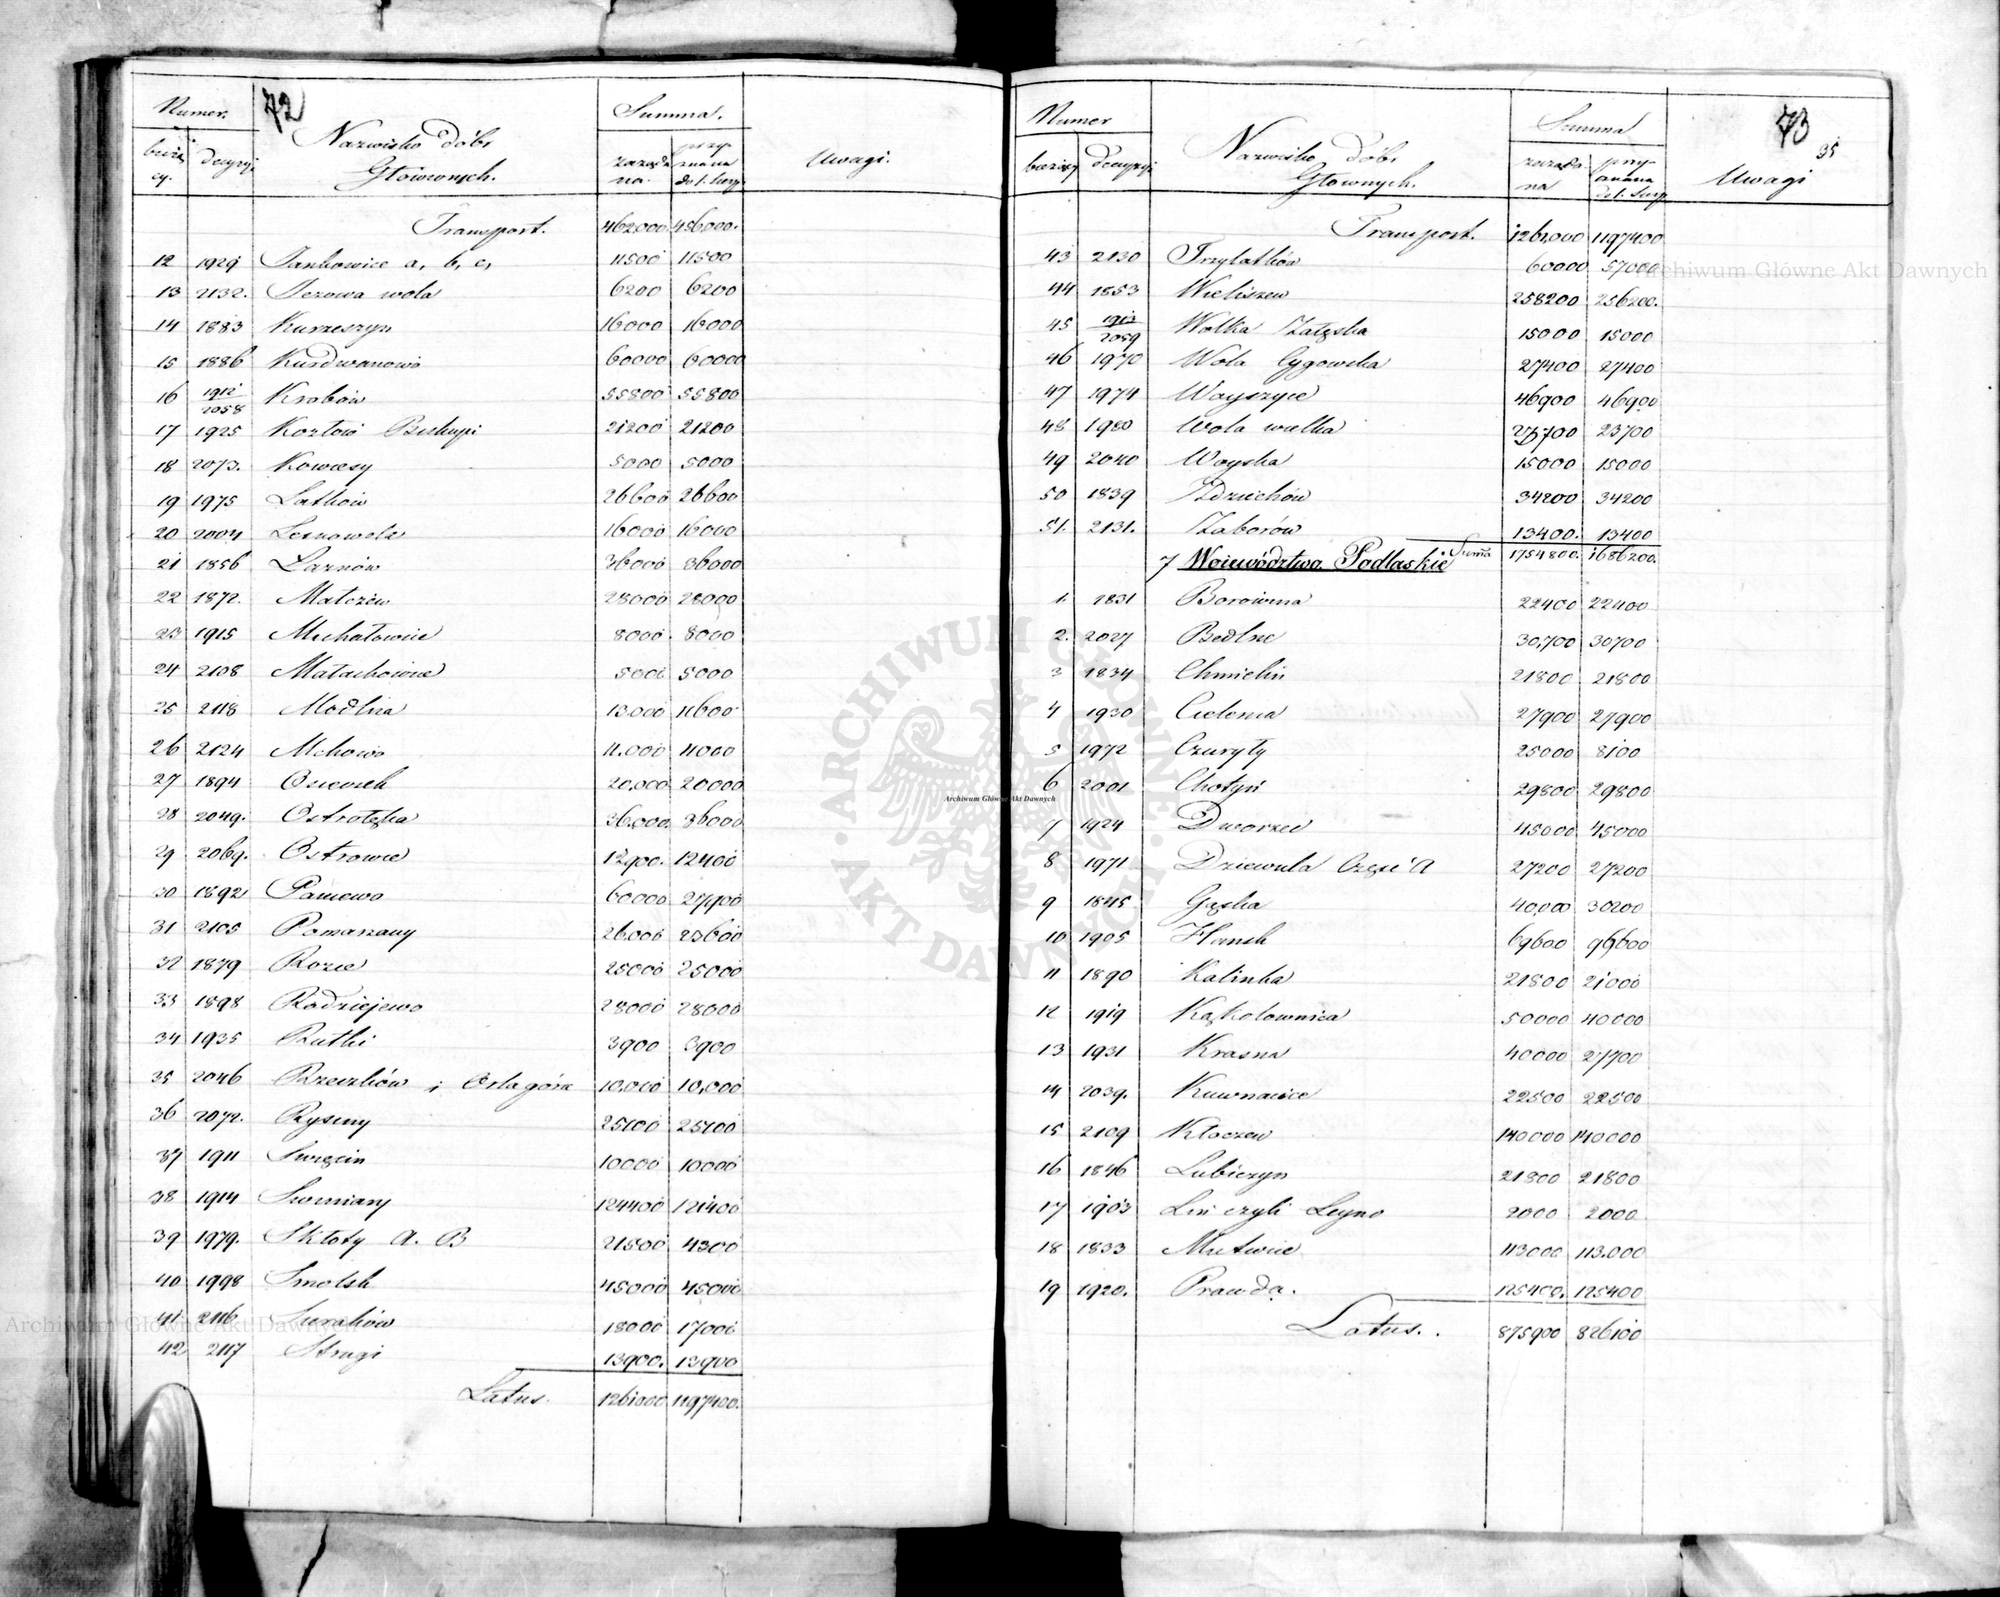 72
Numer.
Summa.
bieżą
cy.
decyzyi
Nazwisko dóbr
Głównych.
zażąda
na.
przy
znana
Uwagi.
Transport. 462000 456000.
12 1929 Jankowice a, b, c, 11500 11500
13 2132. Jeżowa wola 6200 6200
14 1883 Kurzeszyn 16000 16000
15 1886 Kurdwanowo 60000 60000
16 1912/2058 Krobów 55800 55800
17 1925 Kozłow Biskupi 21200 21200
18 2073. Kowiesy 5000 5000
19 1975 Latków 26600 26600
20 2004 Lesznowola 16000 16000
21 1856 Łaznów 36000 36000
22 1872. Małczew 28000 28000
23 1915 Michałowice 8000. 8000
24 2108 Małachowice 5000 5000
25 2118 Modlna 13.000 11600
26 2124 Mchowo 11.000 4000
27 1894 Osieczek 20,000 20000
28 2049. Ostrołęka 36.000. 36000
29 2069. Ostrowce 12900. 12400
30 1892 Paniewo 60000 27900
31 2105 Pomarzany 26.000 23600
32 1879 Rozce 25000 25000
33 1898 Radziejewo 28000 28000
34 1935 Rutki 3900 3900
35 2046 Rzeczków i Oslagóra 10,000 10,000
36 2072. Rysiny 25100 25100
37 1911 Swięcin 10000 10000
38 1914 Szomiany 124400 121400
39 1979. Skłoty A. B 21500 4300
40 1998 Smolsk 45000 45000
41 2116 Suraków 18000 17000
42 2117 Strugi 13900. 13900
Latus. 1261000 1197400.
73
35
Numer
Summa
bieżący
decyzyi
Nazwisko dóbr
Głownych.
zażąda
na
przy
znana
Uwagi
Transport. 1261,000 1197400
43 2130 Trzylatków 60000 57000
44 1853 Wieliszew 258200 256200.
45 1913/2059 Wolka Załęska 15000 15000
46 1970 Wola Cygowska 27400 27400
47 1974 Woyszyce 46900 46900
48 1980 Wola wielka 23700 23700
49 2040 Woyska 15000 15000
50 1839 Zdziechów 34200 34200
51. 2131. Zaborów 13400. 13400
7 Województwo Podlaskie Suma 1754800. 1686200.
1. 1831 Borowina 22400 22400
2. 2027 Bedlne 30,700 30700
3 1834 Chmielin 21800 21800
4 1930 Cielemca 27900 27900
5 1972 Czuryły 25000 8100
6 2001 Chotyń 29800 29800
7 1924 Dworzec 45000 45000
8 1971 Dziewula Część A 27200 27200
9 1845 Gąska 40,000 30200
10 1905 Hansk 69600 96600
11 1890 Kalinka 21800 21000
12 1919 Kąkolownica 50000 40000
13 1931 Krasna 40000 27700
14 2039. Kuwnacice 22500 22500
15 2109 Kłoczew 140000 140000
16 1846 Lubiczyn 21800 21800
17 1903 Liń czyli Leyno 2000 2000
18 1833 Mutwice 113000 113.000
19 1920. Prawda. 125400. 125400
Latus. . 875900 826100
Archiwum Główne Akt Dawnych
Archiwum Główne Akt Dawnych
Archiwum Główne Akt Dawnych
ARCHIWUM GŁÓWNE AKT DAWNYCH